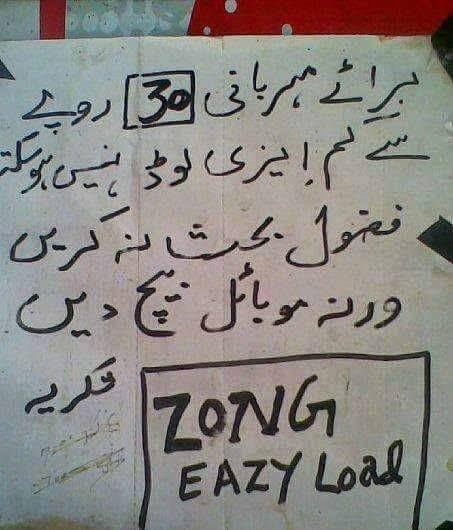 برائے مہربانی 30 روپے
سے کم ایزی لوڈ نہیں ہو سکتا
فضول بحث نہ کریں
ورنہ موبائل بیچ دیں
شکریہ
ZONG
EAZY Load